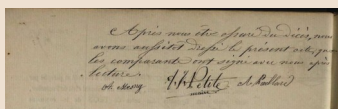 Après nous être assuré du décès, nous
avons aussitôt dressé le présent acte, que
les comparant ont signé avec nous après
lecture.
J. A. Petite
maire